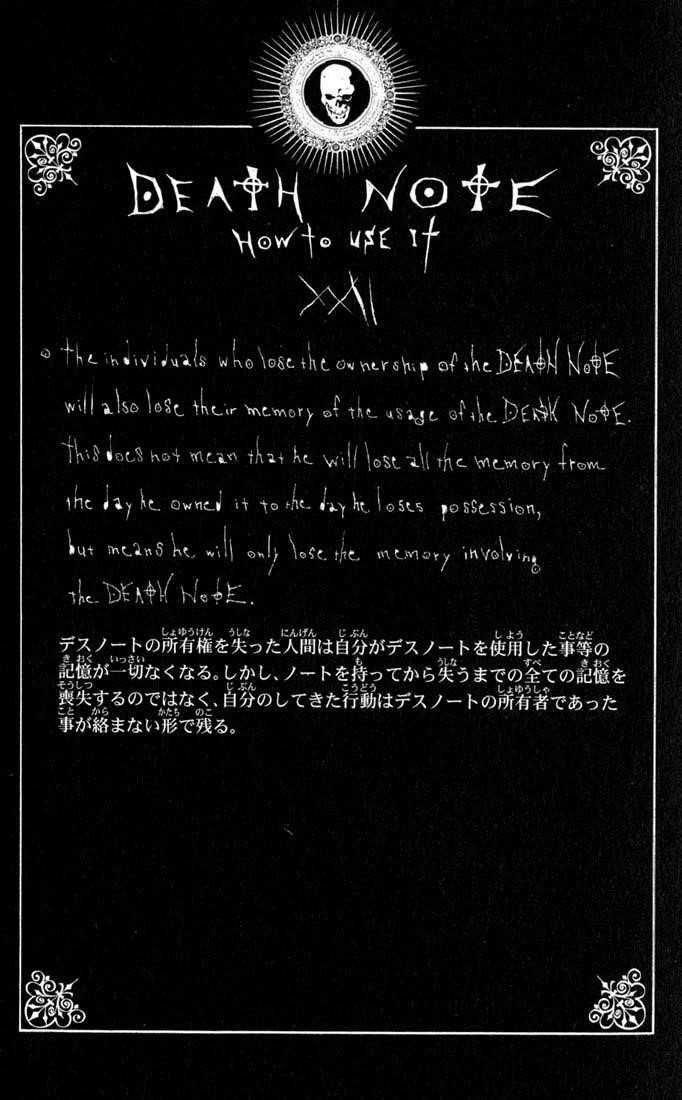 DEATH NOTE
HOW TO USE IT
XXII
The individuals who lose the ownership of the DEATH NOTE
will also lose their memory of the usage of the DEATH NOTE.
This does not mean that he will lose all the memory from
the day he owned it to the day he loses possession,
but means he will only lose the memory involving
the DEATH NOTE.
デスノートの所有権を失った人間は自分がデスノートを使用した事等の
記憶が一切なくなる。しかし、ノートを持ってから失うまでの全ての記憶を
喪失するのではなく、自分のしてきた行動はデスノートの所有者であった
事が絡まない形で残る。